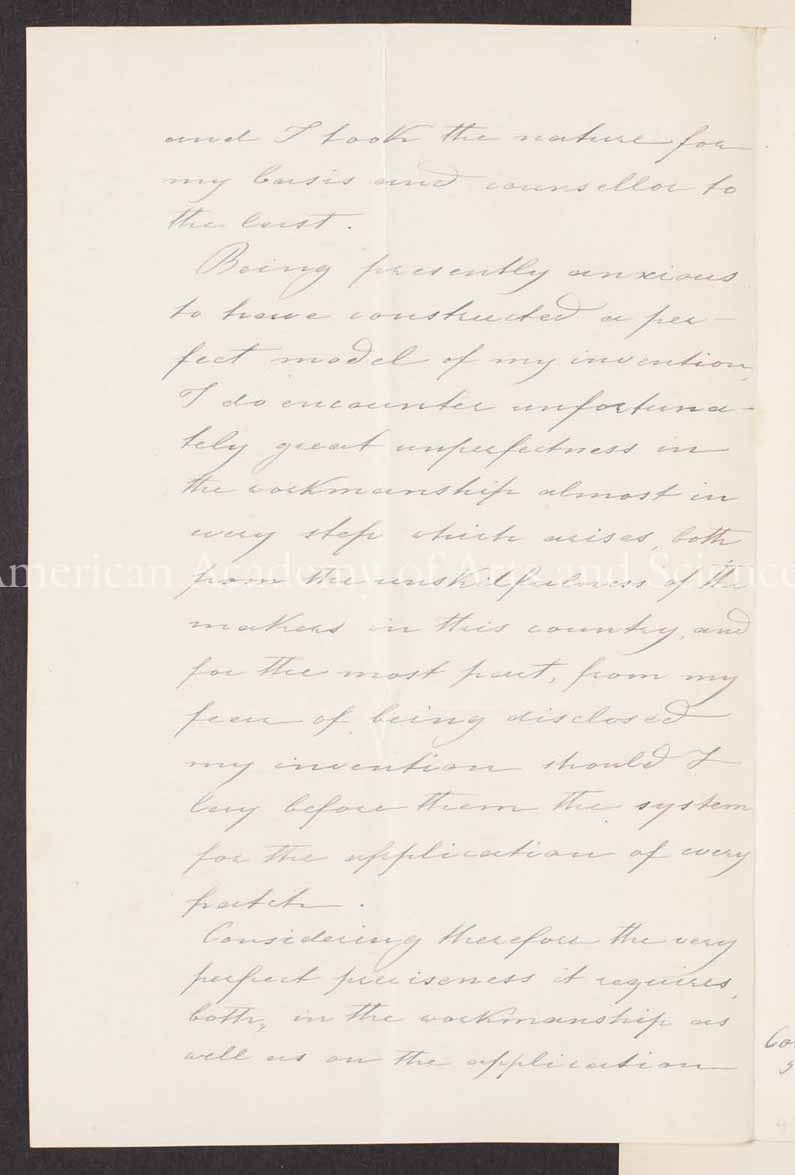 and I took the nature for
my basis and counsellor to
the last.
Being presently anxious
to have constructed a per-
fect model of my invention,
I do encounter unfortuna-
tely great unperfectness in
the workmanship almost in
every step which arises, both
American Academy of Arts and Sciences
from the unskilfulness of the
makers in this country, and
for the most part, from my
fear of being disclosed
my invention should I
lay before them the system
for the application of every
patch.
Considering therefore the very
perfect preciseness it requires,
both, in the workmanship as
well as on the application